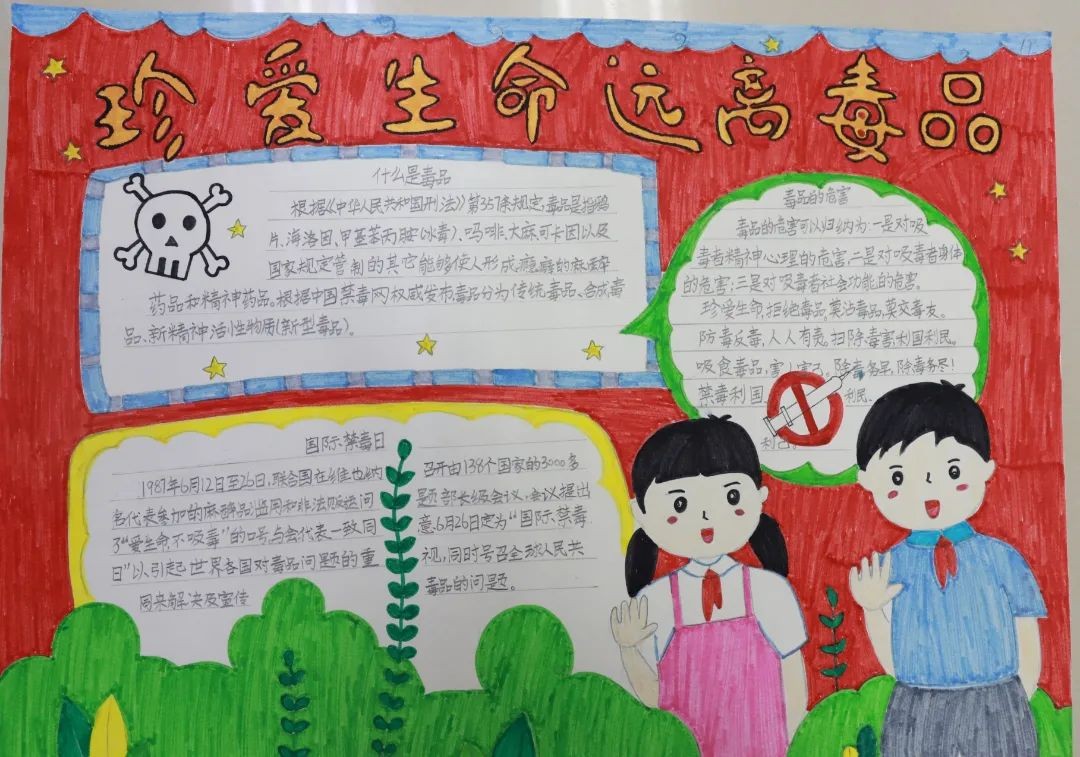 珍爱生命远离毒品
什么是毒品
根据《中华人民共和国刑法》第357条规定,毒品是指鸦
片、海洛因、甲基苯丙胺(冰毒)、吗啡、大麻、可卡因以及
国家规定管制的其它能够使人形成瘾癖的麻醉
药品和精神药品。根据中国禁毒网权威发布,毒品分为传统毒品、合成毒
品、新精神活性物质(新型毒品)。
毒品的危害
毒品的危害可以归纳为:一是对吸
毒者精神心理的危害,二是对吸毒者身体
的危害;三是对吸毒者社会功能的危害。
珍爱生命,拒绝毒品,莫沾毒品,莫交毒友。
防毒反毒,人人有责。扫除毒害,利国利民。
吸食毒品,害人害己。除毒务早,除毒务尽!
禁毒利国、利民、
利己。
国际禁毒日
1987年6月12日至26日,联合国在维也纳
召开由138个国家的3000多
名代表参加的麻醉品滥用和非法贩运问
题部长级会议,会议提出
了“爱生命,不吸毒”的口号,与会代表一致同
意,6月26日定为“国际禁毒
日”以引起世界各国对毒品问题的重
视,同时号召全球人民共
同来解决及宣传
毒品的问题。